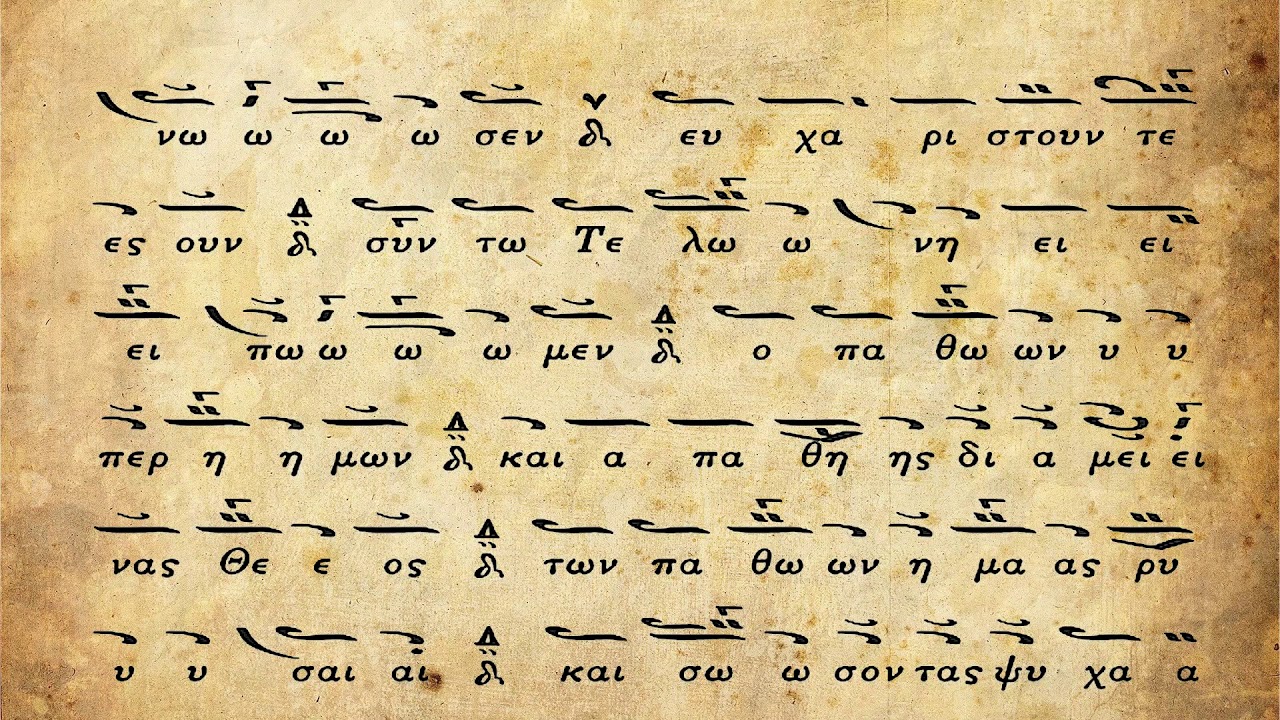 νω ω ω ω σεν δι ευ χα ρι στουν τε
ες ουν Δ δι συν τω Τε λω ω νη ει ει
ει πω ω ω ω μεν Δ δι ο πα θω ων υ υ
περ η η μων Δ δι και α πα θη ης δι α μει ει
νας Θε ε ος Δ δι των πα θω ων η μα ας ρυ
υ υ σαι αι Δ δι και σω ω σον τας ψυ χα α